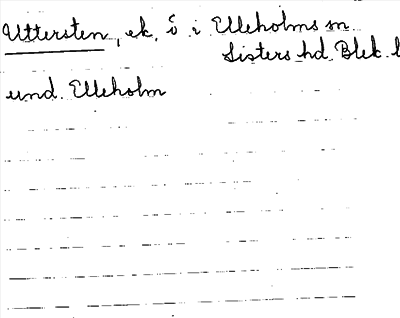 Uttersten, ek. ö i Elleholms sn.
Listers hd. Blek. l
und. Elleholm